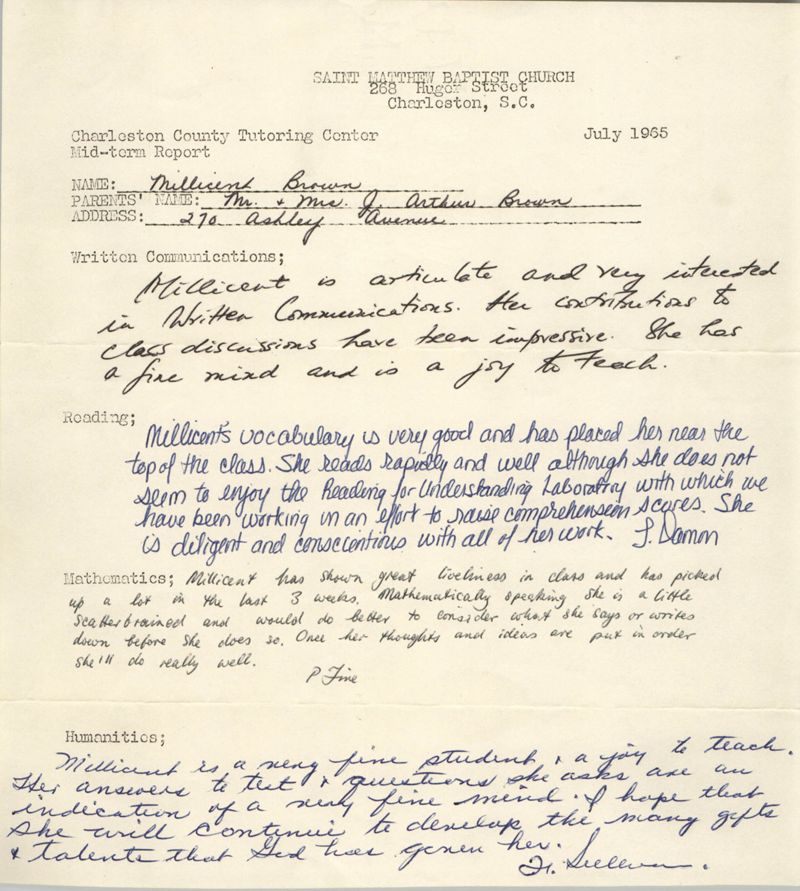 SAINT MATTHEW BAPTIST CHURCH
268 Huger Street
Charleston, S.C.
Charleston County Tutoring Center
July 1965
Mid-term Report
NAME: Millicent Brown
PARENTS' NAME: Mr. + Mrs. J. Arthur Brown
ADDRESS: 270 Ashley Avenue
Written Communications;
Millicent is articulate and very interested
in Written Communications. Her contributions to
class discussions have been impressive. She has
a fine mind and is a joy to teach.
Reading;
Millicent's vocabulary is very good and has placed her near the
top of the class. She reads rapidly and well although she does not
seem to enjoy the Reading for Understanding Laboratory with which we
have been working in an effort to raise comprehension scores. She
is diligent and conscientious with all of her work. J. Damon
Mathematics; Millicent has shown great liveliness in class and has picked
up a lot in the last 3 weeks. Mathematically speaking she is a little
scatterbrained and would do better to consider what she says or writes
down before she does so. Once her thoughts and ideas are put in order
she'll do really well.
P Fine
Humanities;
Millicent is a very fine student + a joy to teach.
Her answers to test + questions she asks are an
indication of a very fine mind. I hope that
she will continue to develop the many gifts
+ talents that God has given her.
Sullivan.